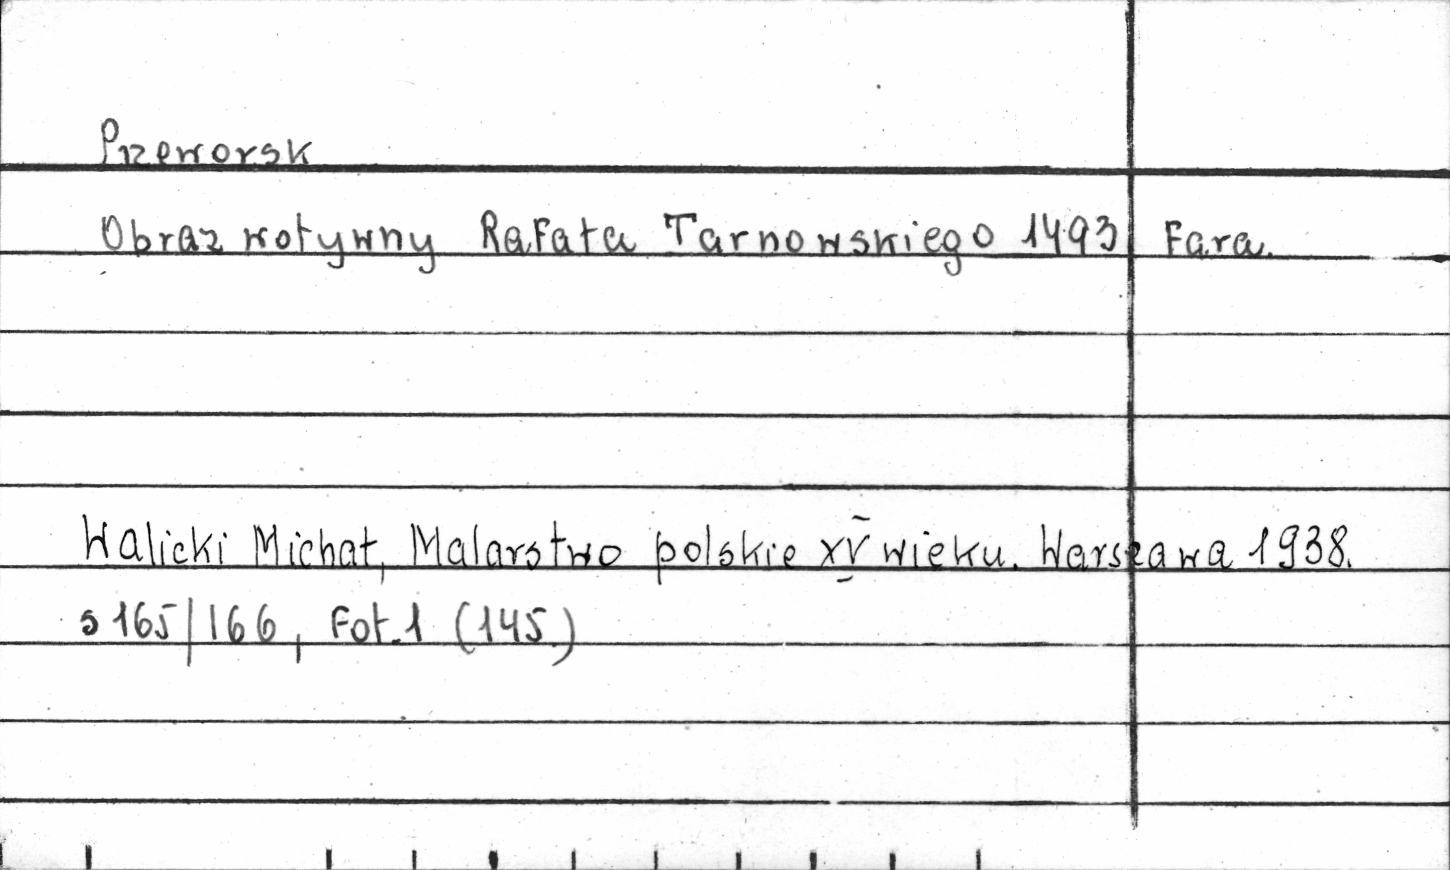 Przeworsk
Obraz wotywny Rafała Tarnowskiego 1493 Fara.
Walicki Michał, Malarstwo polskie XV wieku. Warszawa 1938.
s 165/166, Fot. 1 (145)